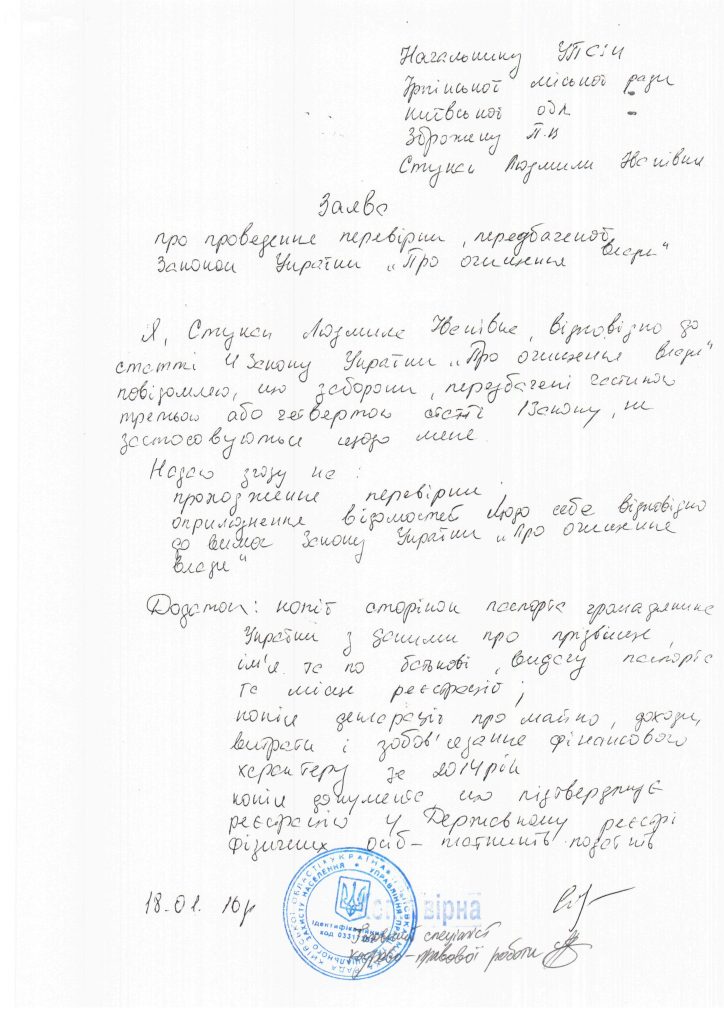 Начальнику УПСЗН
Ірпінської міської ради
Київської обл.
Зброжеку П.В
Стукан Людмили Іванівни
Заява
про проведення перевірки, передбаченої
Законом України „Про очищення влади“
Я, Стукан Людмила Іванівна, відповідно до
статті 4 Закону України „Про очищення влади“
повідомляю, що заборони, передбачені частиною
третьою або четвертою статті 1 Закону, не
застосовуються щодо мене.
Надаю згоду на:
проходження перевірки
оприлюднення відомостей щодо себе відповідно
до вимог Закону України „Про очищення
влади“
Додаток: копії сторінок паспорта громадянина
України з даними про прізвище,
ім'я та по батькові, видачу паспорта
та місце реєстрації;
копія декларації про майно, доходи,
витрати і зобов'язання фінансового
характеру за 2014 рік
копія документа, що підтверджує
реєстрацію у Державному реєстрі
фізичних осіб – платників податків
18.01.16р
Копія вірна
Головний спеціаліст
кадрово-правової роботи